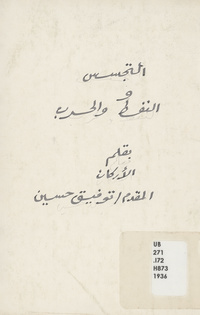 التجسس
و
النفط والحرب
بقلم
الأركان
المقدم / توفيق حسين
UB
271
.I72
H873
1936